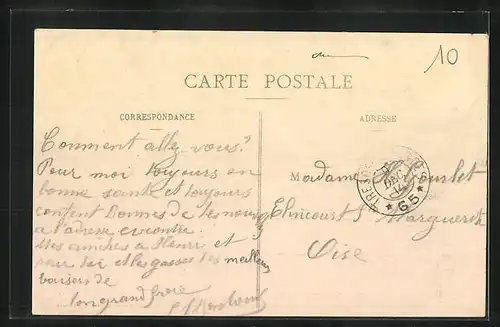 10
CARTE POSTALE
CORRESPONDANCE
ADRESSE
Comment allez vous?
Pour moi toujours en
bonne santé et toujours
content Donnes de tes nouv
a l'adresse
Mes amitiés a Henri et
pour toi et les gosses tes meilleurs
baisers de
ton grand frère
Madame
Elincourt S Marguerite
Oise
DEC
14
G5